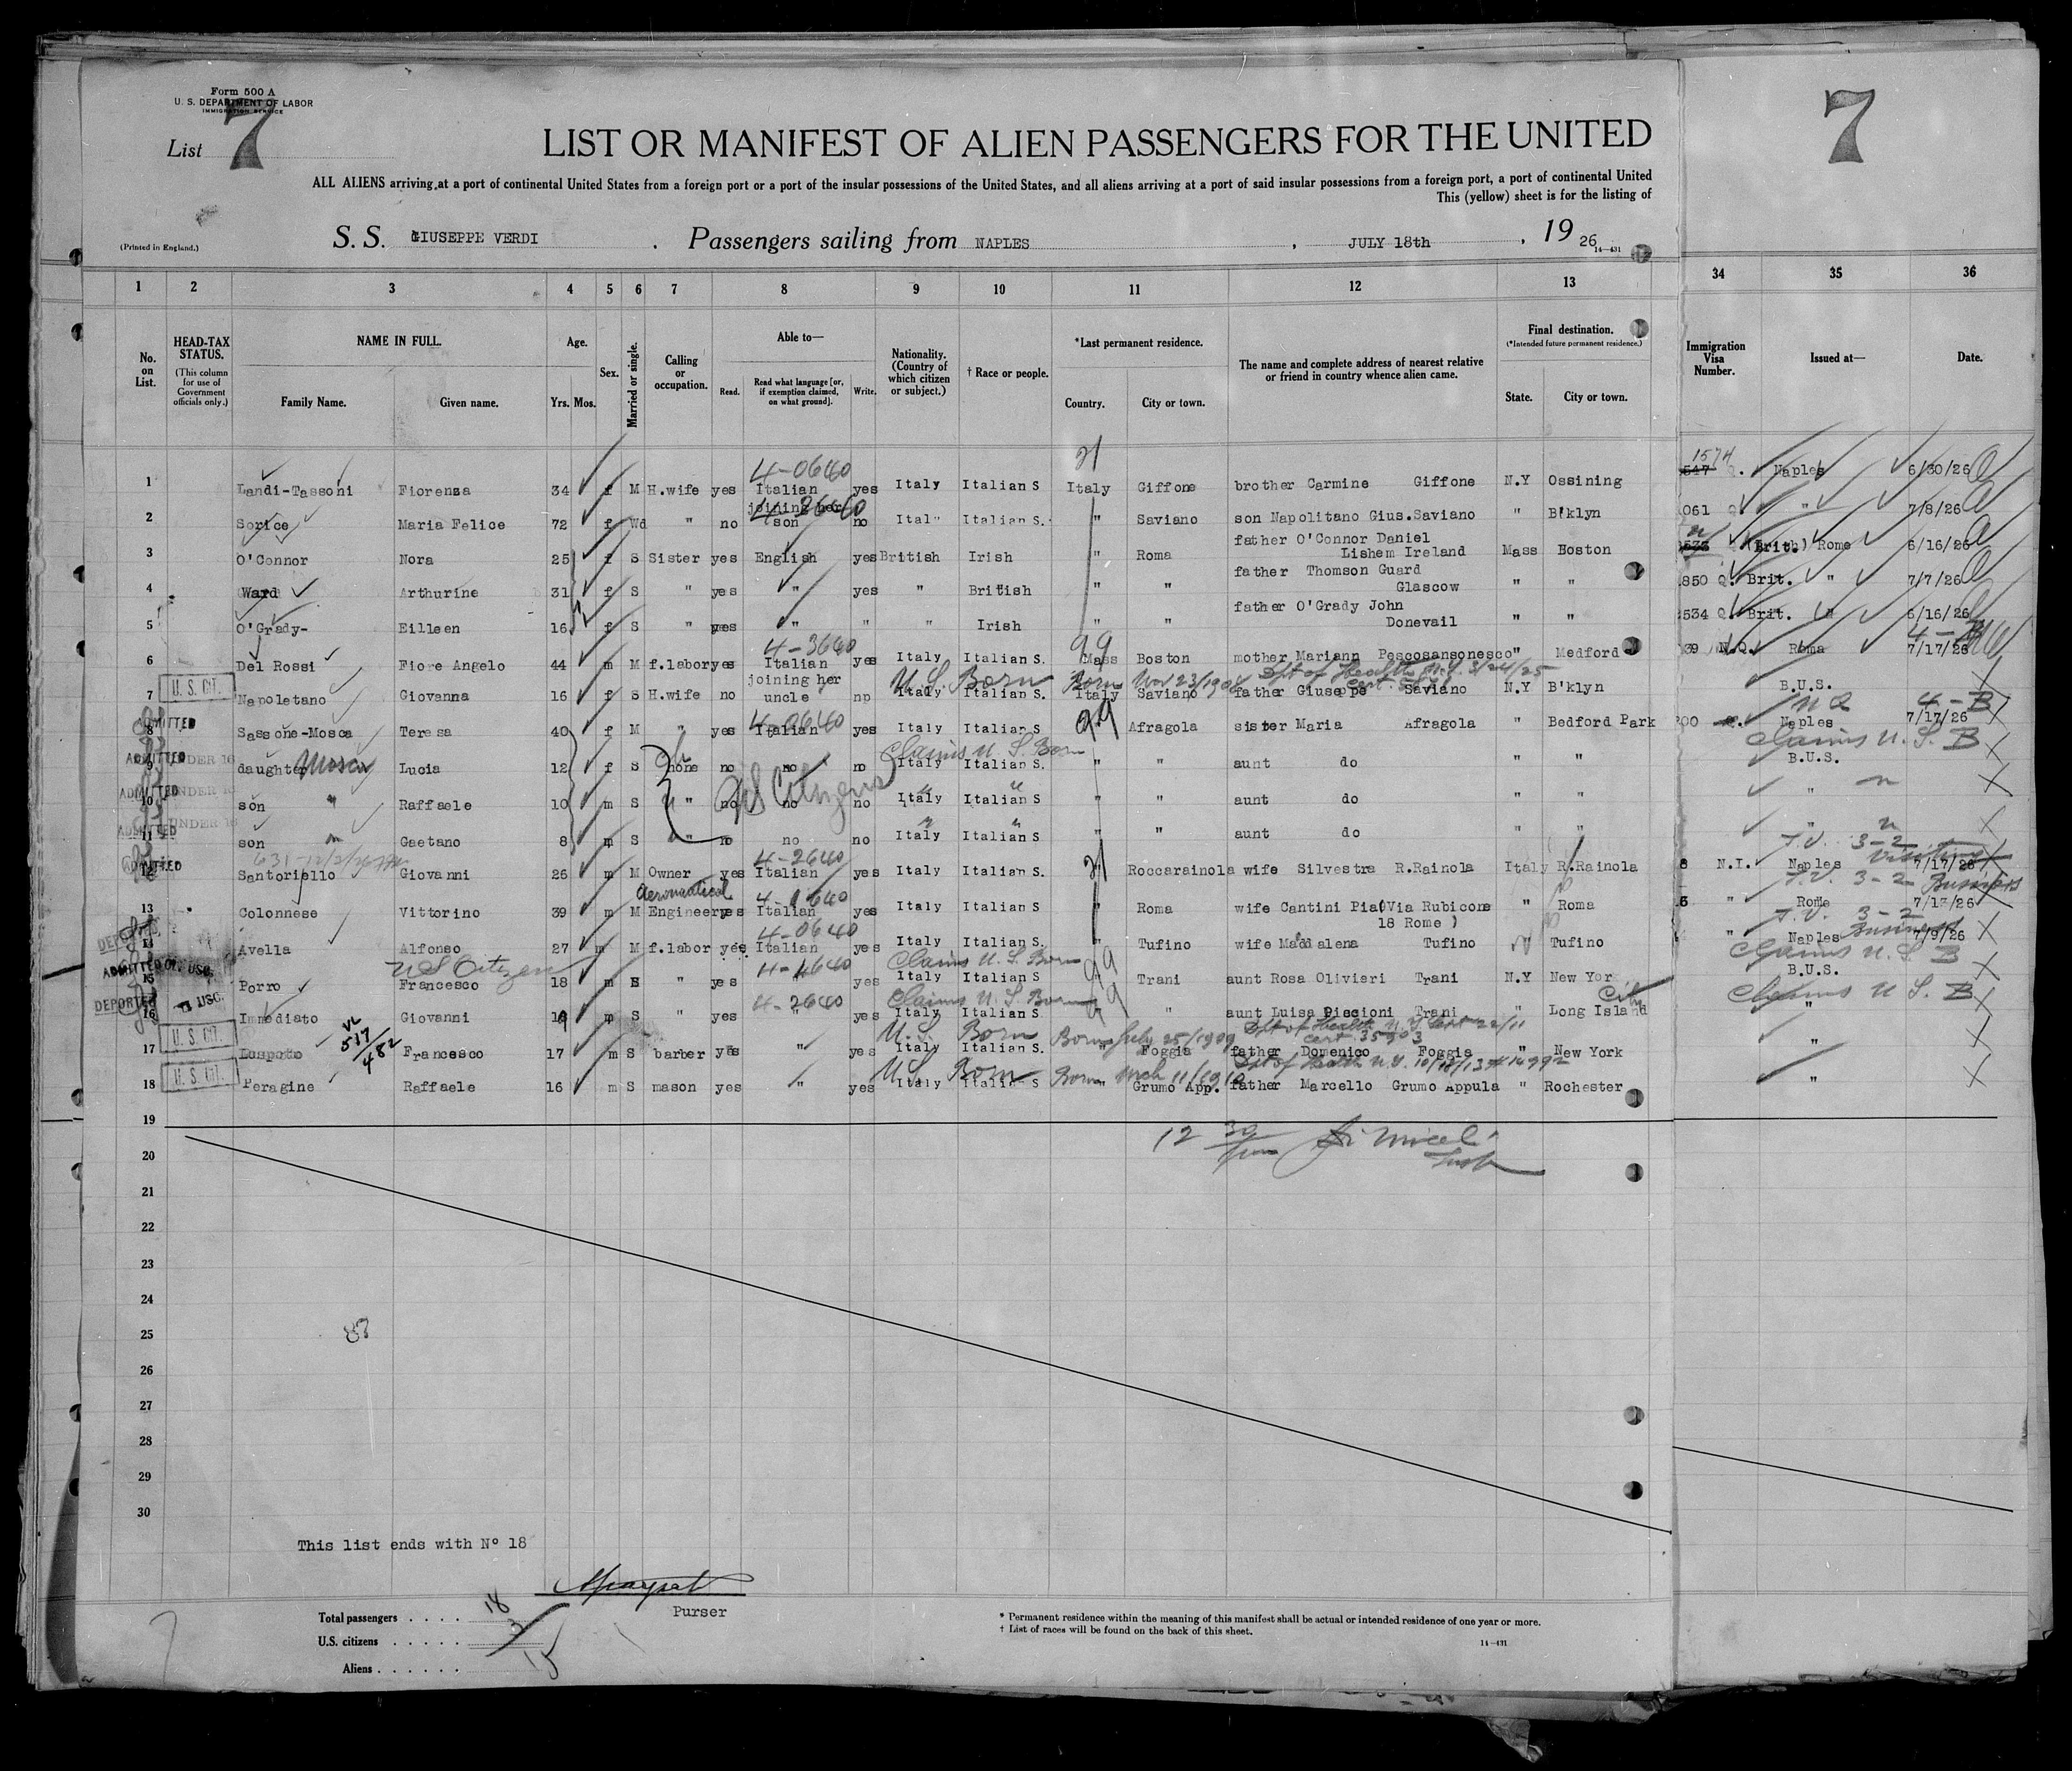 Form 500 A
U. S. DEPARTMENT OF LABOR
IMMIGRATION SERVICE
List 7
7
LIST OR MANIFEST OF ALIEN PASSENGERS FOR THE UNITED
ALL ALIENS arriving at a port of continental United States from a foreign port or a port of the insular possessions of the United States, and all aliens arriving at a port of said insular possessions from a foreign port, a port of continental United
This (yellow) sheet is for the listing of
(Printed in England.)
S. S. GIUSEPPE VERDI . Passengers sailing from NAPLES , JULY 18th , 19 26
14—431
1 2 3 4 5 6 7 8 9 10 11 12 13 34 35 36
No. on List.
HEAD-TAX STATUS.
(This column for use of Government officials only.)
NAME IN FULL.
Family Name. Given name.
Age.
Yrs. Mos.
Sex.
Married or single.
Calling or occupation.
Able to—
Read. Read what language [or, if exemption claimed, on what ground]. Write.
Nationality. (Country of which citizen or subject.)
† Race or people.
*Last permanent residence.
Country. City or town.
The name and complete address of nearest relative or friend in country whence alien came.
Final destination.
(*Intended future permanent residence.)
State. City or town.
Immigration Visa Number.
Issued at—
Date.
4-0640 21 1574
1 Landi-Tassoni Fiorenza 34 f M H.wife yes Italian yes Italy Italian S Italy Giffone brother Carmine Giffone N.Y Ossining 547 Q. Naples 6/30/26
joining her
2 Sorice Maria Felice 72 f Wd " no son no Ital" Italian S. " Saviano son Napolitano Gius.Saviano " B'klyn 061 Q " 7/8/26
father O'Connor Daniel
3 O'Connor Nora 25 f S Sister yes English yes British Irish " Roma Lishem Ireland Mass Boston (Brit.) Rome 6/16/26
father Thomson Guard
4 Ward Arthurine 31 f S " yes " yes " British " " Glascow " " 850 Q. Brit. " 7/7/26
father O'Grady John
5 O'Grady- Eilleen 16 f S " yes " " " Irish " " Donevail " " 534 Q. Brit. " 6/16/26
4-3640 99
6 Del Rossi Fiore Angelo 44 m M f.labor yes Italian yes Italy Italian S. Mass Boston mother Mariann Pescosansonesco " Medford 39 N.Q. Roma 7/17/26
U. S. CIT. joining her U.S. Born Born Nov 23/190 Dpt of Health N.Y. 3/24/25
7 Napoletano Giovanna 16 f S H.wife no uncle no Italy Italian S. Italy Saviano father Giuseppe Saviano N.Y B'klyn B.U.S.
4-0640 99 N Q 4-B
8 Sassone-Mosca Teresa 40 f M " yes Italian yes Italy Italian S " Afragola sister Maria Afragola " Bedford Park 200 Naples 7/17/26
ADMITTED Claims U. S. Born Claims U. S. B
9 daughter Mosca Lucia 12 f S none no no no Italy Italian S. " " aunt do " " B.U.S.
ADMITTED UNDER 16 US Citizens
10 son " Raffaele 10 m S " no no no Italy Italian S " " aunt do " " "
ADMITTED UNDER 16
11 son " Gaetano 8 m S " no no no Italy Italian S " " aunt do " " "
ADMITTED 4-2640 21 T.V. 3-2
12 Santoriello Giovanni 26 m M Owner yes Italian yes Italy Italian S. " Roccarainola wife Silvestra R.Rainola Italy R.Rainola 8 N.I. Naples 7/17/26
Aeronautical T.V. 3-2 Business
13 Colonnese Vittorino 39 m M Engineer yes Italian yes Italy Italian S " Roma wife Cantini Pia(Via Rubicone " Roma 5 " Rome 7/13/26
18 Rome )
4-0640 T.V. 3-2 Business
14 Avella Alfonso 27 m M f.labor yes Italian yes Italy Italian S. " Tufino wife Maddalena Tufino " Tufino " Naples 7/9/26
DEPORTED
US Citizen 4-4640 Claims U. S. Born 99 Claims U. S. B
15 Porro Francesco 18 m S " yes " yes Italy Italian S " Trani aunt Rosa Olivieri Trani N.Y New Yor B.U.S.
DEPORTED USC. 4-2640 Claims U. S. Born 99 City Claims U S. B
16 Immediato Giovanni 19 m S " yes " yes Italy Italian S " " aunt Luisa Piccioni Trani " Long Island "
U. S. CIT. 517/482 U. S. Born Born July 25/1909 Dpt of Health N.Y Cert 22/11
cert. 35903
17 Lospoto Francesco 17 m S barber yes " yes Italy Italian S. " Foggia father Domenico Foggia " New York "
U. S. CIT. U.S. Born Born Mch 11/1910 Dpt of Health N.Y. 10/18/13 # 14992
18 Peragine Raffaele 16 m S mason yes " yes Italy Italian S " Grumo App. father Marcello Grumo Appula " Rochester "
19
12 30
20
21
22
23
24
87
25
26
27
28
29
30
This list ends with Nº 18
Purser
Total passengers . . . . 18
U.S. citizens . . . . . 3
Aliens . . . . . . 15
* Permanent residence within the meaning of this manifest shall be actual or intended residence of one year or more.
† List of races will be found on the back of this sheet.
14—431